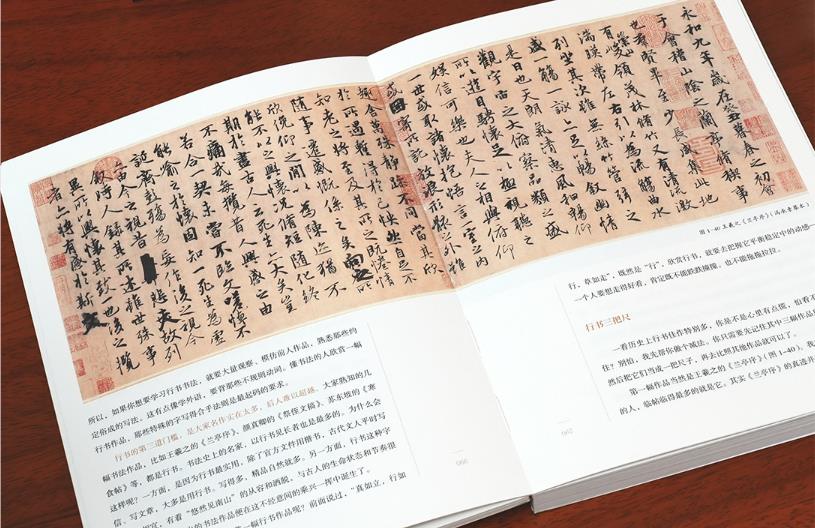 永和九年歲在癸丑暮春之初會
于會稽山陰之蘭亭脩稧事
也羣賢畢至少長咸集此地
有崇山峻領茂林脩竹又有清流激
湍暎帶左右引以為流觴曲水
列坐其次雖無絲竹管弦之
盛一觴一詠亦足以暢敘幽情
是日也天朗氣清惠風和暢仰
觀宇宙之大俯察品類之盛
所以遊目騁懷足以極視聽之
娛信可樂也夫人之相與俯仰
一世或取諸懷抱悟言一室之內
或因寄所託放浪形骸之外雖
趣舍萬殊靜躁不同當其欣
於所遇蹔得於己怏然自足不
知老之將至及其所之既惓情
隨事遷感慨係之矣向之所
欣俛仰之間以為陳迹猶不
能不以之興懷況脩短隨化終
期於盡古人云死生亦大矣豈
不痛哉每攬昔人興感之由
若合一契未嘗不臨文嗟悼不
能喻之於懷固知一死生為虛
誕齊彭殤為妄作後之視今
亦由今之視昔悲夫故列
敘時人錄其所述雖世殊事
異所以興懷其致一也後之攬
者亦將有感於斯文
所以，如果你想要学习行书书法，就要大量观察、模仿前人作品，熟悉那些约
定俗成的写法。这有点像学外语，要背那些不规则动词。懂书法的人欣赏一幅
行书作品，那些特殊的字写得合乎法则是最起码的要求。
行书的第二道门槛，是大家名作实在太多，后人难以超越。大家熟知的几
幅书法作品，比如王羲之的《兰亭序》、颜真卿的《祭侄文稿》、苏东坡的《寒
食帖》等，都是行书。书法史上的名家，以行书见长者也是最多的。为什么会
这样呢？一方面，是因为行书最实用，除了官方文件用楷书，古代文人平时写
信、写文章，大多是用行书。写得多，精品自然就多。另一方面，行书这种字
相宜，有着“悠然见南山”的从容和洒脱，与古人的生命状态和节奏很
的书法作品便在这不经意间的乘兴一挥中诞生了。
一幅行书作品呢？前面说过，“真如立，行如
图 1-40 王羲之《兰亭序》（冯承素摹本）
行，草如走”，既然是“行”，欣赏行书，就要去把握它平衡稳定中的动感—
一个人要想走得好看，肯定既不能跌跌撞撞，也不能拖拖拉拉。
行书三把尺
一看历史上行书佳作特别多，你是不是心里有点慌，怕看不
住？别怕，我先帮你做个减法。你只需要先记住其中三幅作品
然后把它们当成一把尺子，再去比照其他作品就可以了。
第一幅作品当然是王羲之的《兰亭序》（图 1-40）。我
的人，临帖临得最多的就是它。其实《兰亭序》的真迹并